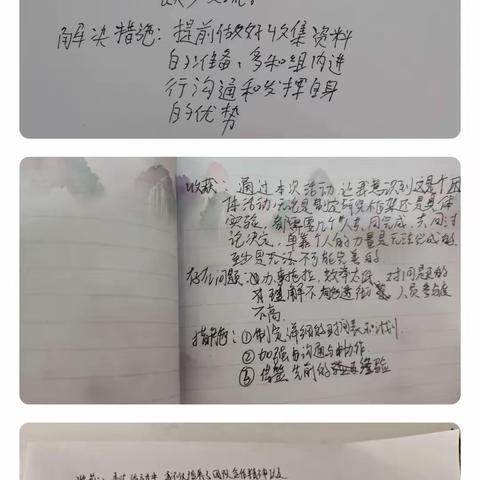 解决措施：提前做好收集资料
的准备，多和组内进
行沟通和发挥自身
的优势
收获：通过本次活动让我意识到这是个团
体活动，无论是制定研究框架还是具体
实验，都需要几个人共同完成，共同讨
论决定，单靠个人的力量是无法完成的，
至少是无法不可能完善的。
存在问题：①办事拖拉，效率太低，时间
有 理解不 人员参与度
不高。
措施：①制定详细的时间表和计划
②加强沟通与协作
③借鉴先前的经验
收获：